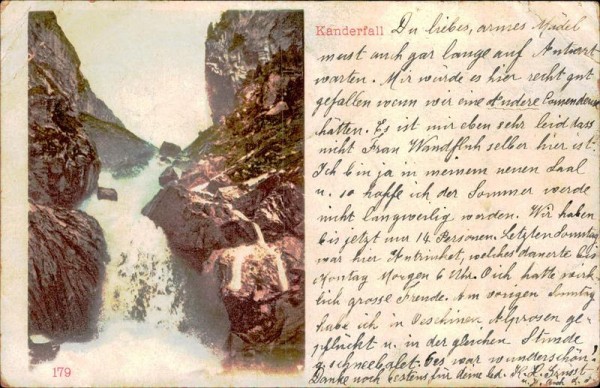 Kanderfall
Du liebes, armes Mädel
must auch gar lange auf Antwort
warten. Mir würde es hier recht gut
gefallen wenn wir eine andere
hätten. Es ist mir eben sehr leid dass
nicht Frau Wandfluh selber hier ist.
Ich bin ja in meinem neuen Saal
u. so hoffe ich der Sommer werde
nicht langweilig werden. Wir haben
bis jetzt nur 14 Personen. Letzten Sonntag
war hier welches dauerte bis
Montag Morgen 6 Uhr. O ich hatte wirk
lich grosse Freude. Am vorigen Sonntag
habe ich in Oeschinen Alprosen ge-
pflückt u. in der gleichen Stunde
geschneebalet. Es war wunderschön!
Danke noch bestens für deine
179